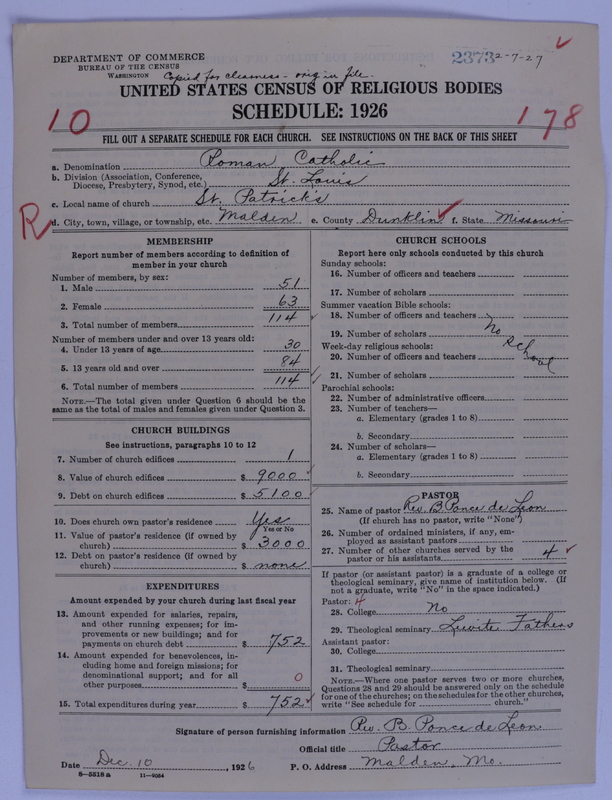 DEPARTMENT OF COMMERCE
BUREAU OF THE CENSUS
WASHINGTON
2373 2-7-27
Copied for clearness - orig in file.
UNITED STATES CENSUS OF RELIGIOUS BODIES
SCHEDULE: 1926
10
178
FILL OUT A SEPARATE SCHEDULE FOR EACH CHURCH. SEE INSTRUCTIONS ON THE BACK OF THIS SHEET
a. Denomination Roman Catholic
b. Division (Association, Conference, Diocese, Presbytery, Synod, etc.) St. Louis
c. Local name of church St. Patrick's
R
d. City, town, village, or township, etc. Malden e. County Dunklin f. State Missouri
MEMBERSHIP
Report number of members according to definition of member in your church
Number of members, by sex:
1. Male 51
2. Female 63
3. Total number of members 114
Number of members under and over 13 years old:
4. Under 13 years of age 30
5. 13 years old and over 84
6. Total number of members 114
NOTE.—The total given under Question 6 should be the same as the total of males and females given under Question 3.
CHURCH BUILDINGS
See instructions, paragraphs 10 to 12
7. Number of church edifices 1
8. Value of church edifices $ 9000
9. Debt on church edifices $ 5100
10. Does church own pastor's residence Yes
Yes or No
11. Value of pastor's residence (if owned by church) $ 3000
12. Debt on pastor's residence (if owned by church) $ none
EXPENDITURES
Amount expended by your church during last fiscal year
13. Amount expended for salaries, repairs, and other running expenses; for improvements or new buildings; and for payments on church debt $ 752
14. Amount expended for benevolences, including home and foreign missions; for denominational support; and for all other purposes $ 0
15. Total expenditures during year $ 752
CHURCH SCHOOLS
Report here only schools conducted by this church
Sunday schools:
16. Number of officers and teachers
17. Number of scholars
Summer vacation Bible schools:
18. Number of officers and teachers
19. Number of scholars
No School
Week-day religious schools:
20. Number of officers and teachers
21. Number of scholars
Parochial schools:
22. Number of administrative officers
23. Number of teachers—
a. Elementary (grades 1 to 8)
b. Secondary
24. Number of scholars—
a. Elementary (grades 1 to 8)
b. Secondary
PASTOR
25. Name of pastor Rev. B. Ponce de Leon
(If church has no pastor, write "None")
26. Number of ordained ministers, if any, employed as assistant pastors
27. Number of other churches served by the pastor or his assistants 4
If pastor (or assistant pastor) is a graduate of a college or theological seminary, give name of institution below. (If not a graduate, write "No" in the space indicated.)
Pastor: 4
28. College No
29. Theological seminary Fathers
Assistant pastor:
30. College
31. Theological seminary
NOTE.—Where one pastor serves two or more churches, Questions 28 and 29 should be answered only on the schedule for one of the churches; on the schedules for the other churches, write "See schedule for church."
Signature of person furnishing information Rev. B. Ponce de Leon
Official title Pastor
Date Dec. 10, 1926 P. O. Address Malden, Mo.
8—5518a 11—9054